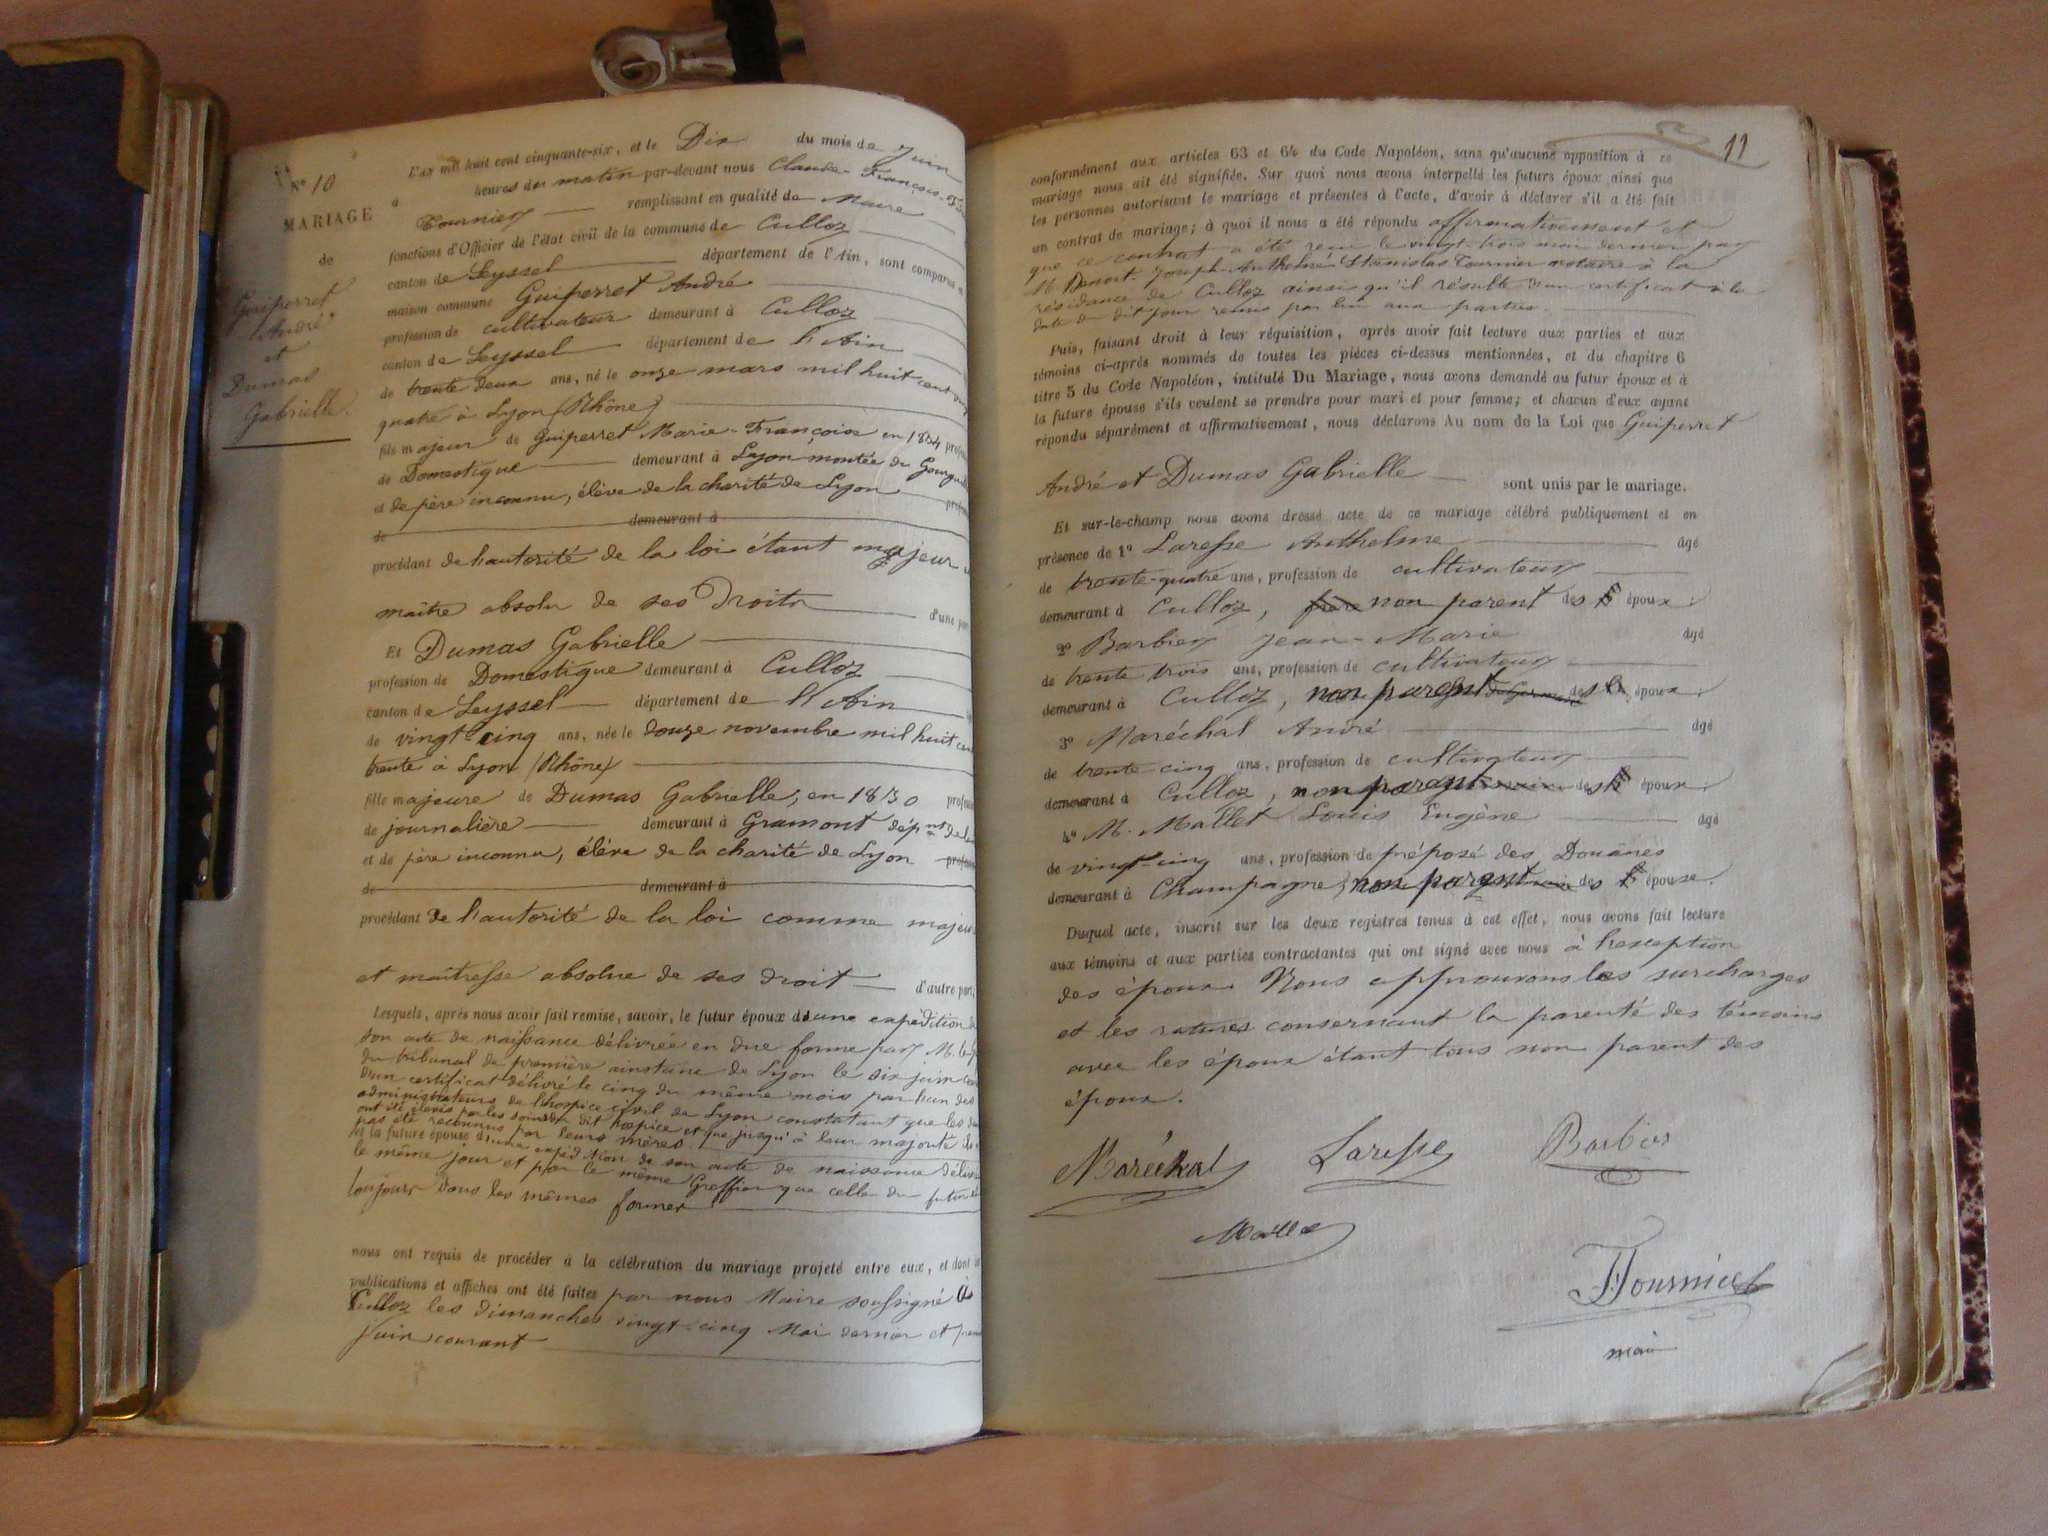 N° 10
MARIAGE
de
Guiperret
André
et
Dumas
Gabrielle.
L'an mil huit cent cinquante-six, et le Dix du mois de Juin
à heures du matin par-devant nous Claude-François-
Tournier remplissant en qualité de Maire
fonctions d'Officier de l'état civil de la commune de Culloz
canton de Seyssel département de l'Ain, sont comparus
maison commune Guiperret André
profession de cultivateur demeurant à Culloz
canton de Seyssel département de l'Ain
de trente deux ans, né le onze mars mil huit cent
quatre à Lyon (Rhône)
fils majeur de Guiperret Marie-Françoise en 1824
de Domestique demeurant à Lyon montée du
et de père inconnu, élève de la charité de Lyon
de demeurant à
procédant de l'autorité de la loi étant majeur
maître absolu de ses Droits d'une part
Et Dumas Gabrielle
profession de Domestique demeurant à Culloz
canton de Seyssel département de l'Ain
de vingt-cinq ans, née le douze novembre mil huit
trente à Lyon (Rhône)
fille majeure de Dumas Gabrielle, en 1830
de journalière demeurant à Gramont dépnt de
et de père inconnu, éléve de la charité de Lyon
de demeurant à
procédant de l'autorité de la loi comme
et maîtresse absolue de ses droit d'autre part;
Lesquels, après nous avoir fait remise, savoir, le futur époux d'une expédition
son acte de naissance délivrée en due forme par M. le
du tribunal de première instance de Lyon le six juin
d'un certificat délivré le cinq du même mois par l'un des
administrateurs de l'hospice civil de Lyon constatant que les
ont été élevés par les soins du dit hospice et que jusqu'à leur majorité
pas été reconnus par leurs mères
Et la future épouse d'une expédition de son acte de naissance
le même jour et par le même Greffier que celle du futur
toujours dans les mêmes formes
nous ont requis de procéder à la célébration du mariage projeté entre eux, et dont
publications et affiches ont été faites par nous Maire soussigné à
Culloz les dimanches vingt-cinq Mai dernier et
Juin courant
11
conformément aux articles 63 et 64 du Code Napoléon, sans qu'aucune opposition à ce
mariage nous ait été signifiée. Sur quoi nous avons interpellé les futurs époux ainsi que
les personnes autorisant le mariage et présentes à l'acte, d'avoir à déclarer s'il a été fait
un contrat de mariage; à quoi il nous a été répondu affirmativement et
que ce contrat a été reçu le vingt-trois mai dernier par
M. Benoit-Joseph-Anthelme Stanislas Tournier notaire à la
résidance de Culloz ainsi qu'il résulte d'un certificat à la
date du dit jour remis par lui aux parties.
Puis, faisant droit à leur réquisition, après avoir fait lecture aux parties et aux
témoins ci-après nommés de toutes les pièces ci-dessus mentionnées, et du chapitre 6
titre 5 du Code Napoléon, intitulé Du Mariage, nous avons demandé au futur époux et à
la future épouse s'ils veulent se prendre pour mari et pour femme; et chacun d'eux ayant
répondu séparément et affirmativement, nous déclarons Au nom de la Loi que Guiperret
André et Dumas Gabrielle sont unis par le mariage.
Et sur-le-champ nous avons dressé acte de ce mariage célébré publiquement et en
présence de 1° Laresse Anthelme âgé
de trente-quatre ans, profession de cultivateur
demeurant à Culloz, non parent des époux
2° Barbier Jean-Marie âgé
de trente trois ans, profession de cultivateur
demeurant à Culloz, non parent des époux
3° Maréchal André âgé
de trente cinq ans, profession de cultivateur
demeurant à Culloz, non parent des époux
4° M. Mallet Louis Eugène âgé
de vingt-cinq ans, profession de préposé des Douanes
demeurant à Champagne, non parent des épouse.
Duquel acte, inscrit sur les deux registres tenus à cet effet, nous avons fait lecture
aux témoins et aux parties contractantes qui ont signé avec nous à l'exception
des époux. Nous approuvons les surcharges
et les ratures consernant la parenté des témoins
avec les époux étant tous non parent des
époux.
Maréchal Laresse Barbier
Mallet
Tournier
mai